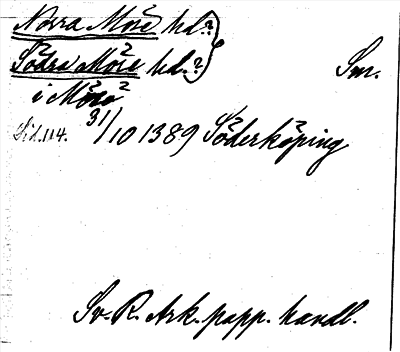 Norra Möre hd.?
Södra Möre hd.? Sm.
i Möre
Sid. 114. 31/10 1389 Söderköping
Sv. R. Ark. papp. handl.